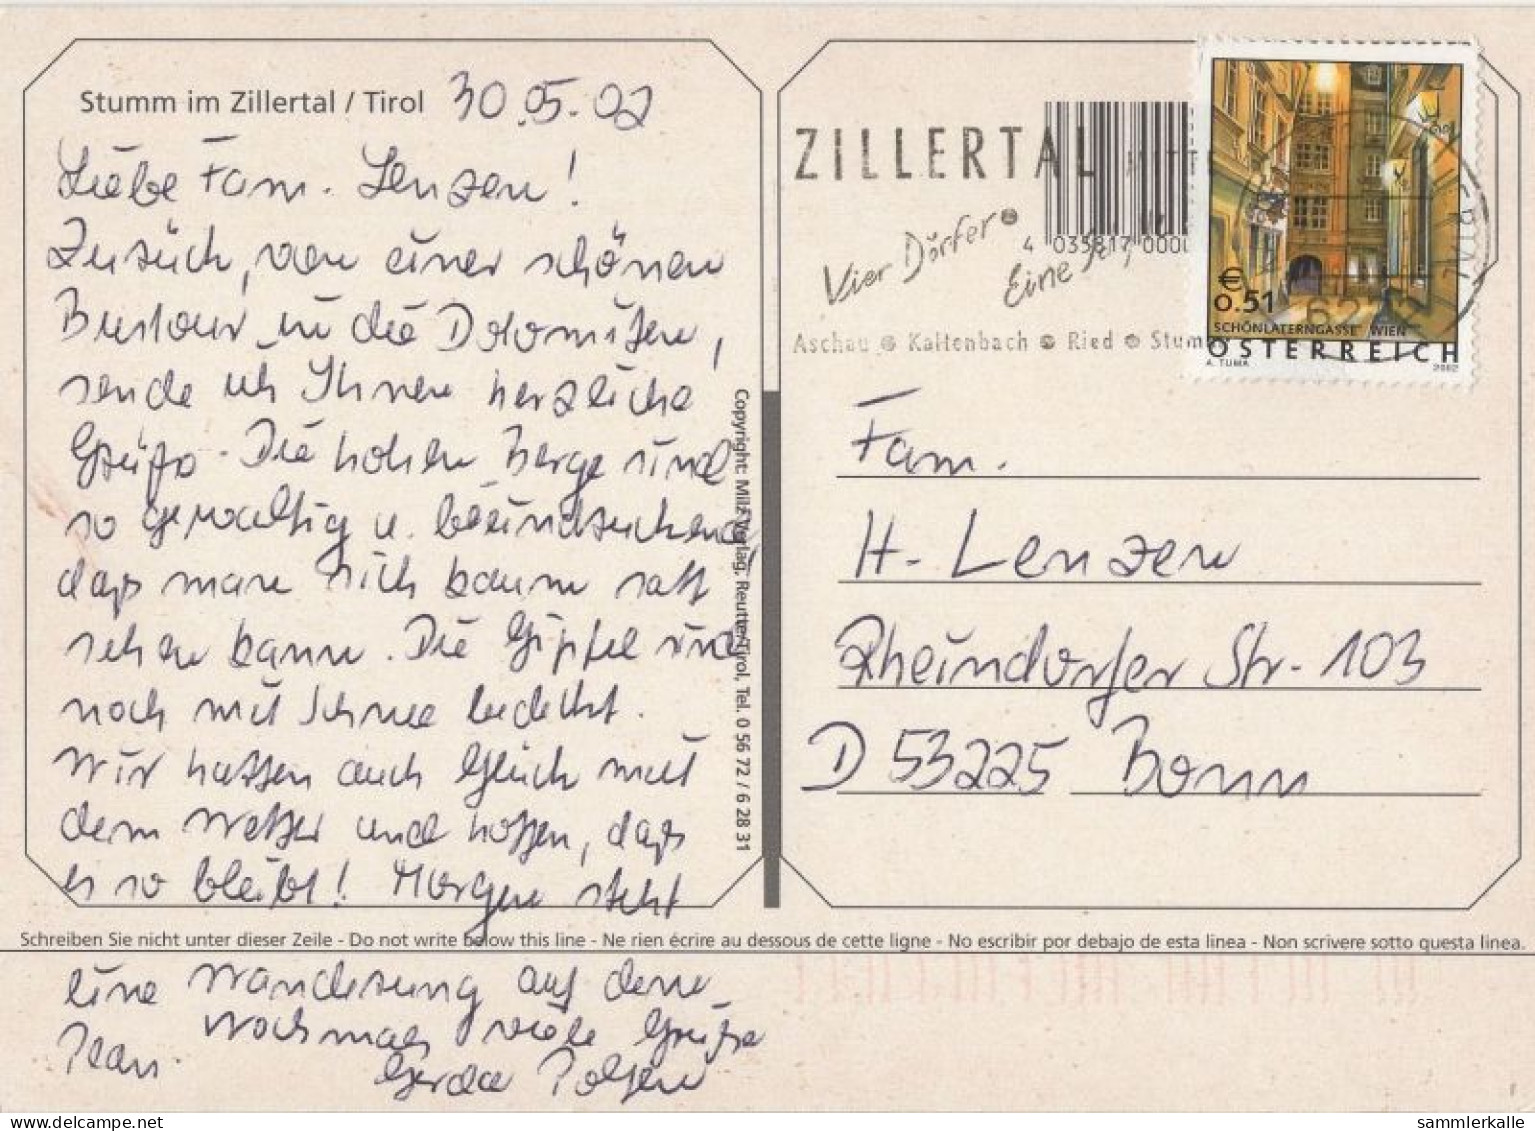 Stumm im Zillertal / Tirol 30.05.02
Liebe Fam. Lenzen!
Zurück, von einer schönen
Bustour in die Dolomiten,
sende ich Ihnen herzliche
Grüße. Die hohen Berge sind
so gewaltig u. beeindruckend,
daß man sich kaum satt
sehen kann. Die Gipfel sind
noch mit Schnee bedeckt.
Wir hatten auch Glück mit
dem Wetter und hoffen, daß
es so bleibt! Morgen steht
Schreiben Sie nicht unter dieser Zeile - Do not write below this line - Ne rien écrire au dessous de cette ligne - No escribir por debajo de esta linea - Non scrivere sotto questa linea.
eine Wanderung auf dem
Plan. Nochmals viele Grüße
Gerda
Copyright: Milz-Verlag, Reutte/Tirol, Tel. 0 56 72 / 6 28 31
ZILLERTAL MITTE
Vier Dörfer
Eine
Aschau Kaltenbach Ried Stumm
4 035817 000
€
0.51
SCHÖNLATERNGASSE WIEN
ÖSTERREICH
A. TUMA 2002
Fam.
H. Lenzen
Rheindorfer Str. 103
D 53225 Bonn
sammlerkalle